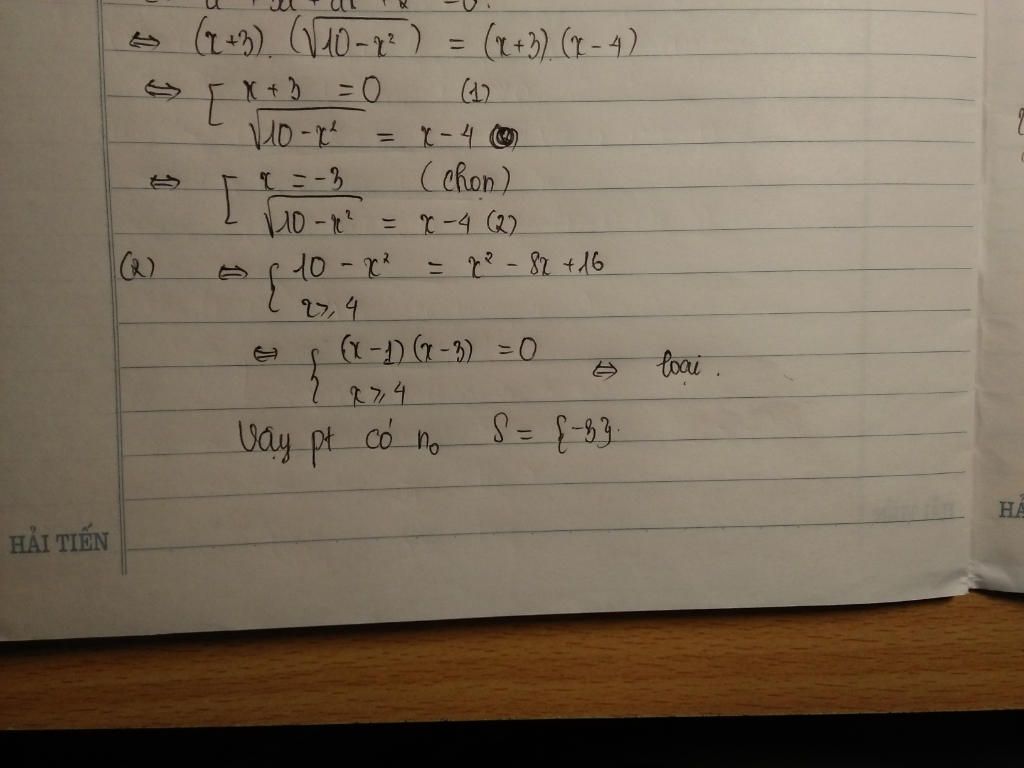 ⇔ (x+3).(√(10-x²)) = (x+3).(x-4)
⇔ [ x+3 =0 (1)
√(10-x²) = x-4
⇔ [ x = -3 (chọn)
√(10-x²) = x-4 (2)
(2) ⇔ { 10-x² = x²-8x+16
x≥4
⇔ { (x-1)(x-3) =0 ⇔ loại.
x≥4
Vậy pt có n₀ S = {-3}.
HẢI TIẾN
HẢ